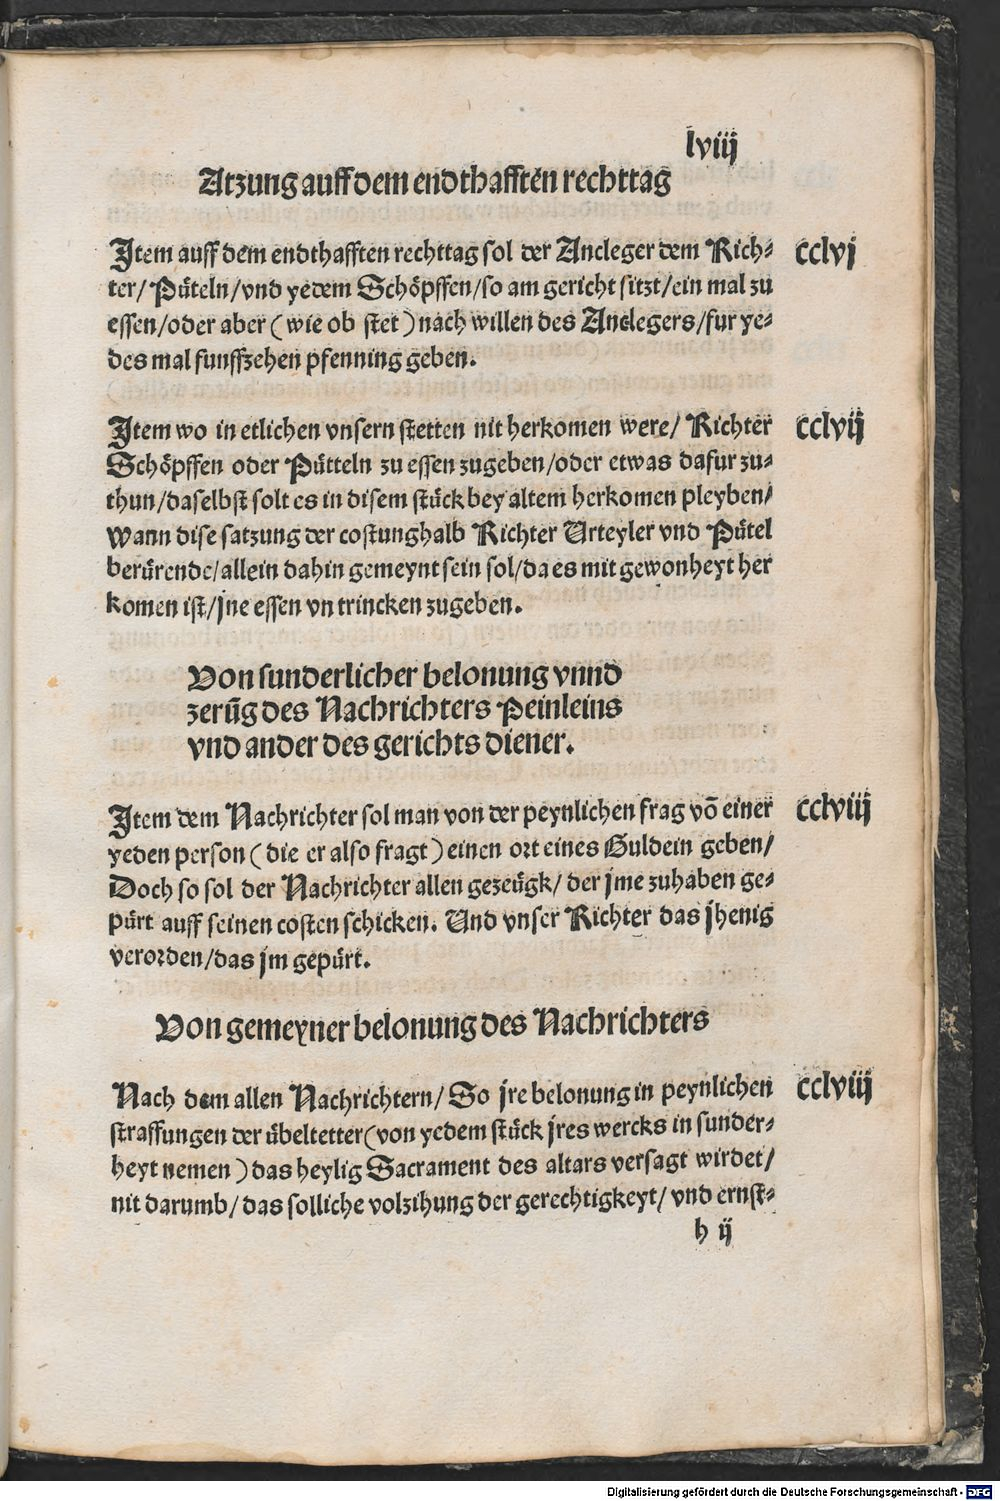 lviij
Atzung auff dem endthafften rechttag
Item auff dem endthafften rechttag sol der Ancleger dem Rich-
ter/ Pütteln/vnd yedem Schöpffen/so am gericht sitzt/ein mal zu
essen/oder aber (wie ob stet) nach willen des Anclegers/fur ye-
des mal funffzehen pfenning geben.
cclvj
Item wo in etlichen vnsern stetten nit herkomen were/ Richter
Schöpffen oder Pütteln zu essen zugeben/oder etwas dafur zu-
thun/daselbst solt es in disem stück bey altem herkomen pleyben/
Wann dise satzung der costunghalb Richter Urteyler vnd Pütel
berürende/allein dahin gemeynt sein sol/da es mit gewonheyt her
komen ist/jne essen vn trincken zugeben.
cclvij
Von sunderlicher belonung vnnd
zerūg des Nachrichters Peinleins
vnd ander des gerichts diener.
Item dem Nachrichter sol man von der peynlichen frag vō einer
yeden person (die er also fragt) einen ort eines Guldein geben/
Doch so sol der Nachrichter allen gezeügk/ der jme zuhaben ge-
pürt auff seinen costen schicken. Und vnser Richter das jhenig
verorden/das jm gepürt.
cclviij
Von gemeyner belonung des Nachrichters
Nach dem allen Nachrichtern/ So jre belonung in peynlichen
straffungen der übeltetter(von yedem stück jres wercks in sunder-
heyt nemen) das heylig Sacrament des altars versagt wirdet/
nit darumb/das solliche volzihung der gerechtigkeyt/ vnd ernst-
cclviij
h ij
Digitalisierung gefördert durch die Deutsche Forschungsgemeinschaft - DFG